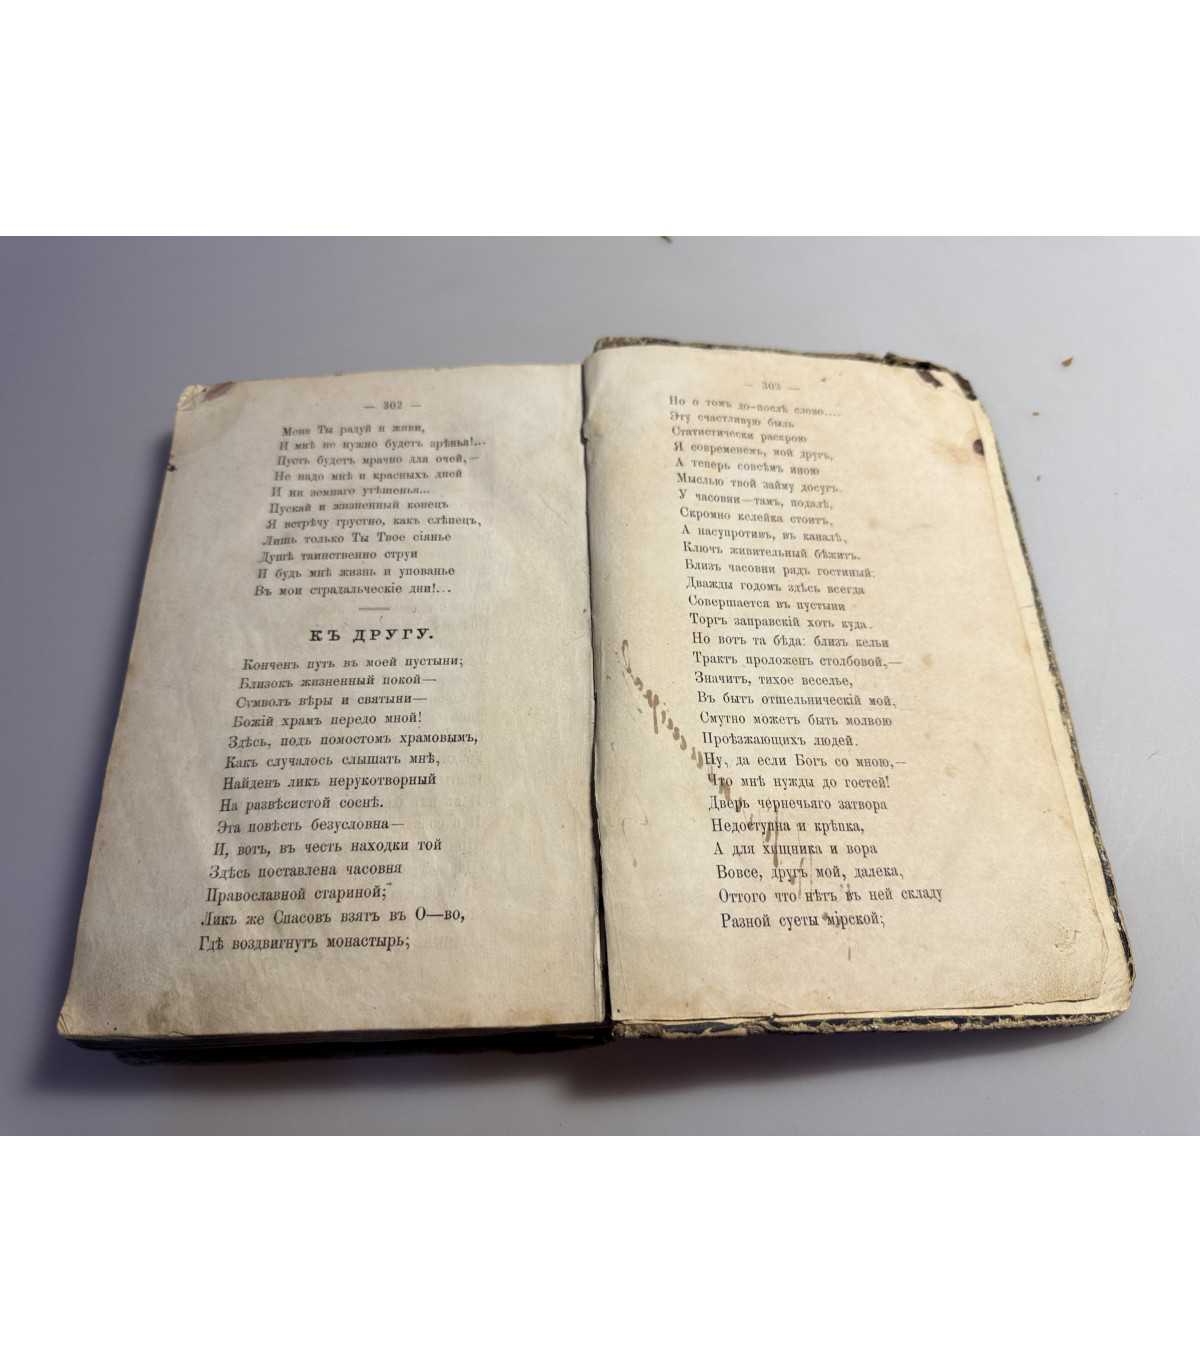 — 302 —
Мене Ты радуй и живи,
И мнѣ не нужно будетъ зрѣнья!...
Пусть будетъ мрачно для очей,—
Не надо мнѣ и красныхъ дней
И ни земнаго утѣшенья...
Пускай и жизненный конецъ
Я встрѣчу грустно, какъ слѣпецъ,
Лишь только Ты Твое сіянье
Душѣ таинственно струи
И будь мнѣ жизнь и упованье
Въ мои страдальческіе дни!...
КЪ ДРУГУ.
Конченъ путь въ моей пустыни;
Близокъ жизненный покой—
Сумволъ вѣры и святыни—
Божій храмъ передо мной!
Здѣсь, подъ помостомъ храмовымъ,
Какъ случалось слышать мнѣ,
Найденъ ликъ нерукотворный
На развѣсистой соснѣ.
Эта повѣсть безусловна—
И, вотъ, въ честь находки той
Здѣсь поставлена часовня
Православной стариной;
Ликъ же Спасовъ взятъ въ О—во,
Гдѣ воздвигнутъ монастырь;
— 303 —
Но о томъ до-послѣ слово....
Эту счастливую быль
Статистически раскрою
Я современемъ, мой другъ,
А теперь совсѣмъ иною
Мыслью твой займу досугъ.
У часовни—тамъ, подалѣ,
Скромно келейка стоитъ,
А насупротивъ, въ каналѣ,
Ключъ живительный бѣжитъ.
Близъ часовни рядъ гостиный:
Дважды годомъ здѣсь всегда
Совершается въ пустыни
Торгъ заправскій хоть куда.
Но вотъ та бѣда: близъ кельи
Трактъ проложенъ столбовой,—
Значитъ, тихое веселье,
Въ бытъ отшельническій мой,
Смутно можетъ быть молвою
Проѣзжающихъ людей.
Ну, да если Богъ со мною,—
Что мнѣ нужды до гостей!
Дверь чернечьяго затвора
Недоступна и крѣпка,
А для хищника и вора
Вовсе, другъ мой, далека,
Оттого что нѣтъ въ ней складу
Разной суеты мірской;